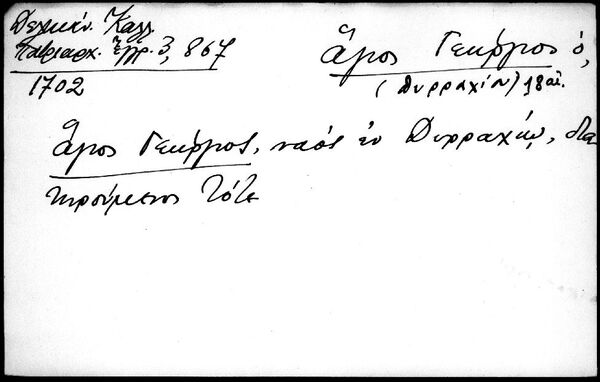 Δελικάν. Καλλ.
Πατριαρχ. Ἔγγρ. 3, 867
1702
Ἅγιος Γεώργιος ὁ,
(Δυρραχίου) 18 αἰ.
Ἅγιος Γεώργιος, ναὸς ἐν Δυρραχίῳ, δια
τηρούμενος τότε